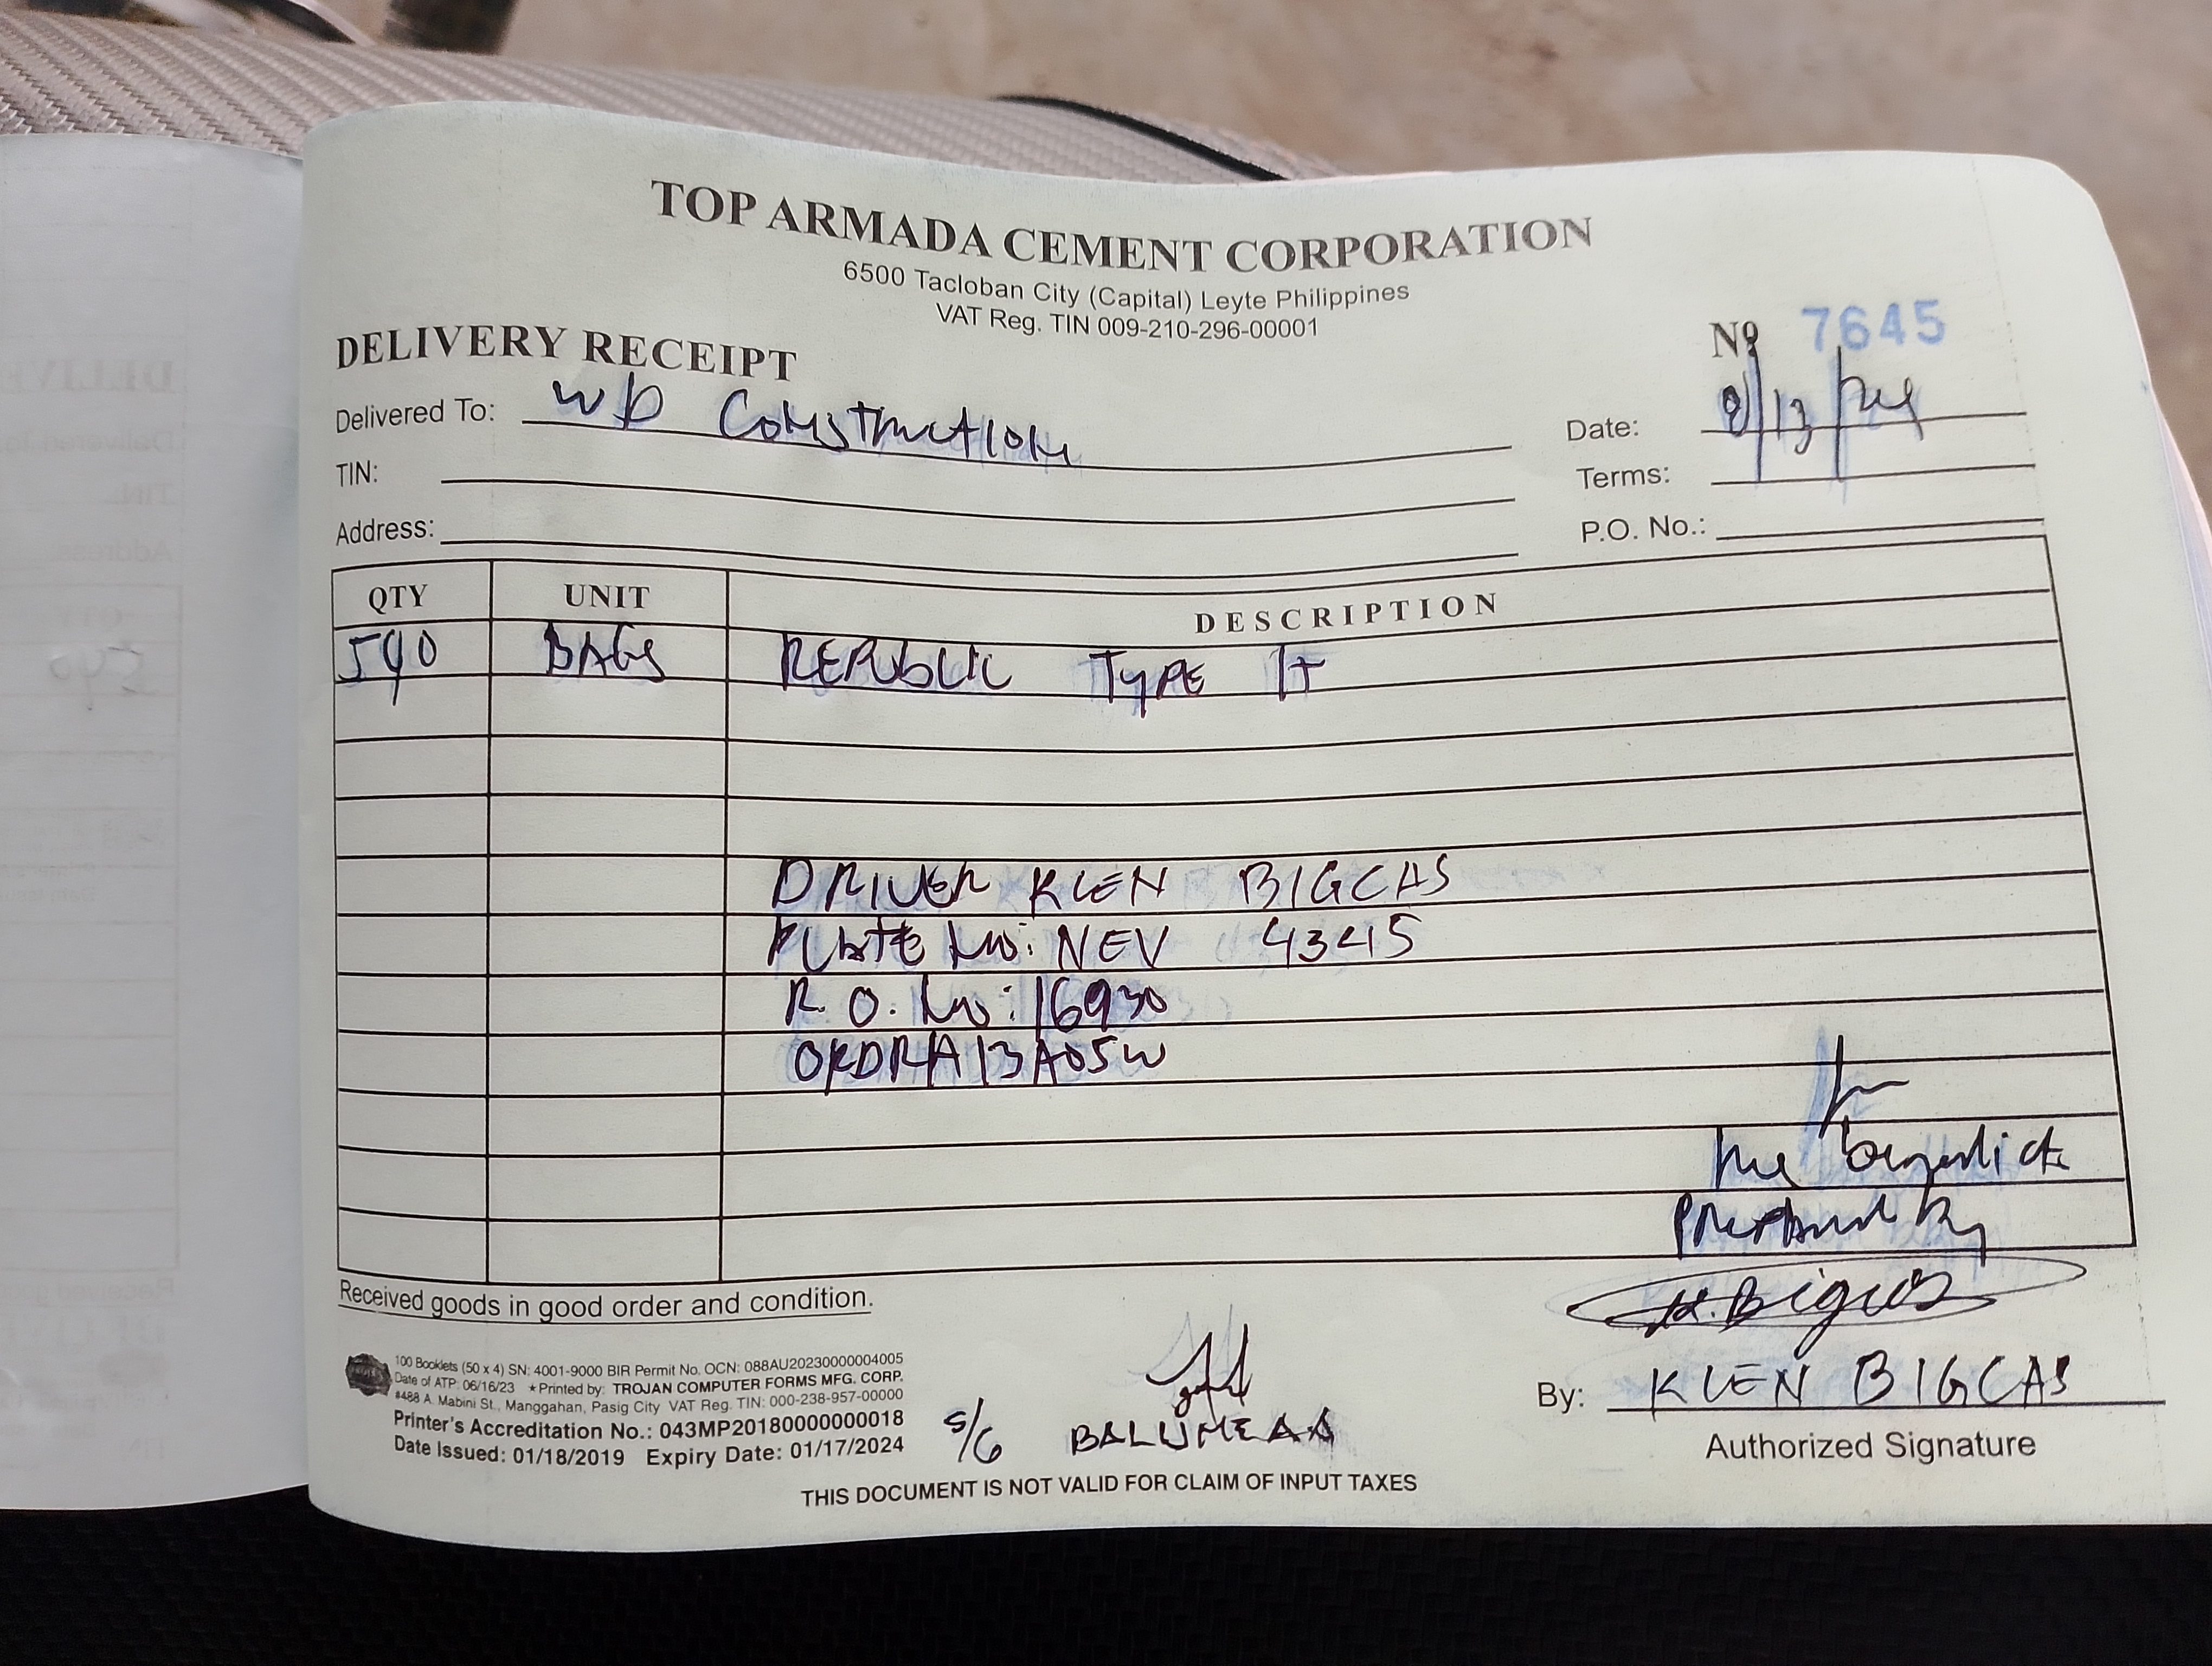 TOP ARMADA CEMENT CORPORATION
6500 Tacloban City (Capital) Leyte Philippines
VAT Reg. TIN 009-210-296-00001
DELIVERY RECEIPT
Nº 7645
Delivered To: WD Construction
Date: 8/13/24
TIN:
Terms:
Address:
P.O. No.:
QTY UNIT DESCRIPTION
540 BAGS REPUBLIC TYPE 1T
DRIVER KLEN BIGCAS
PLATE No: NEV 4345
R.O. No: 16930
ORDRA13A05W
Prepared by
K. Bigcas
Received goods in good order and condition.
100 Booklets (50 x 4) SN: 4001-9000 BIR Permit No. OCN: 088AU20230000004005
Date of ATP: 06/16/23 ★Printed by: TROJAN COMPUTER FORMS MFG. CORP.
#488 A. Mabini St., Manggahan, Pasig City VAT Reg. TIN: 000-238-957-00000
Printer's Accreditation No.: 043MP20180000000018
Date Issued: 01/18/2019 Expiry Date: 01/17/2024
S/G
By: KLEN BIGCAS
Authorized Signature
THIS DOCUMENT IS NOT VALID FOR CLAIM OF INPUT TAXES